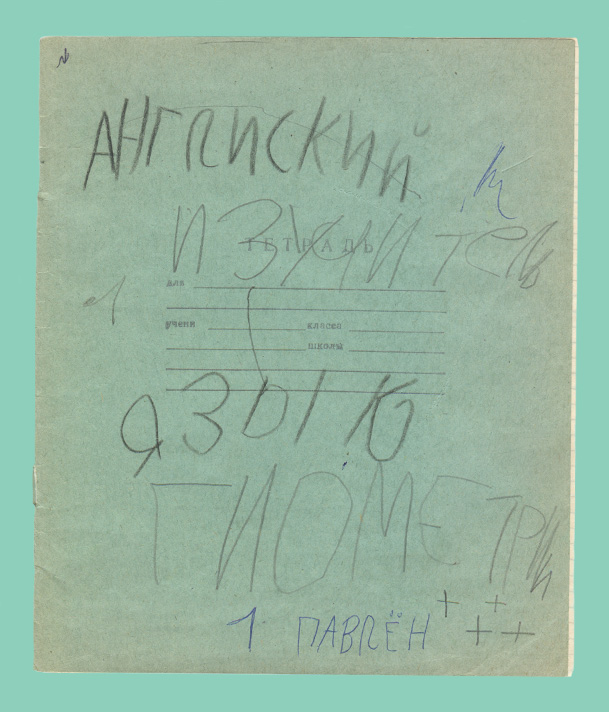 АНГЛИСКИЙ
ТЕТРАДЬ
для
1
учени класса
школы
ЯЗЫК
ГИОМЕТРИИ
+ +
1 ПАВЛЁН + +